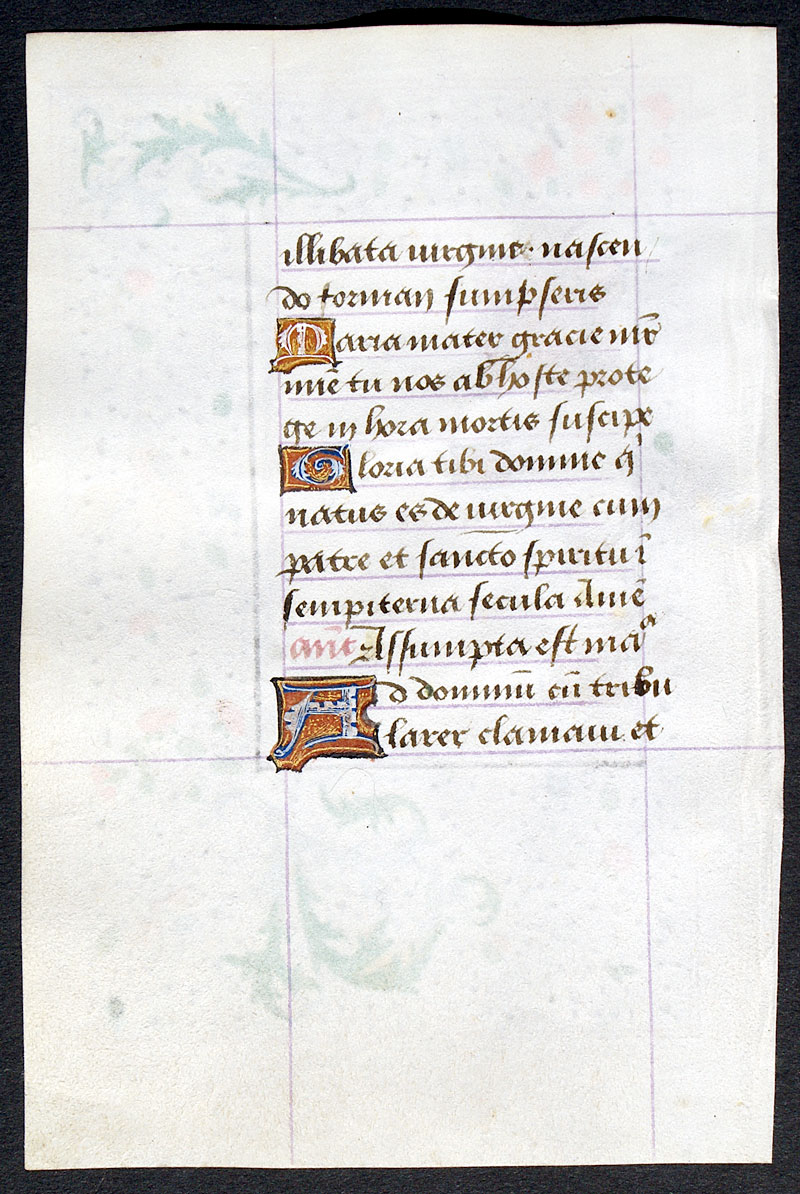 illibata virgine · nascen
do forman sumpseris
Maria mater gracie mr̄
mīe tu nos ab hoste prote
ge in hora mortis suscipe
Gloria tibi domine q̄
natus es de virgine cum
patre et sancto spiritu ī
sempiterna secula Amē
ant̄ Assumpta est maᵃ
Ad dominū cū tribu
larer clamavi et